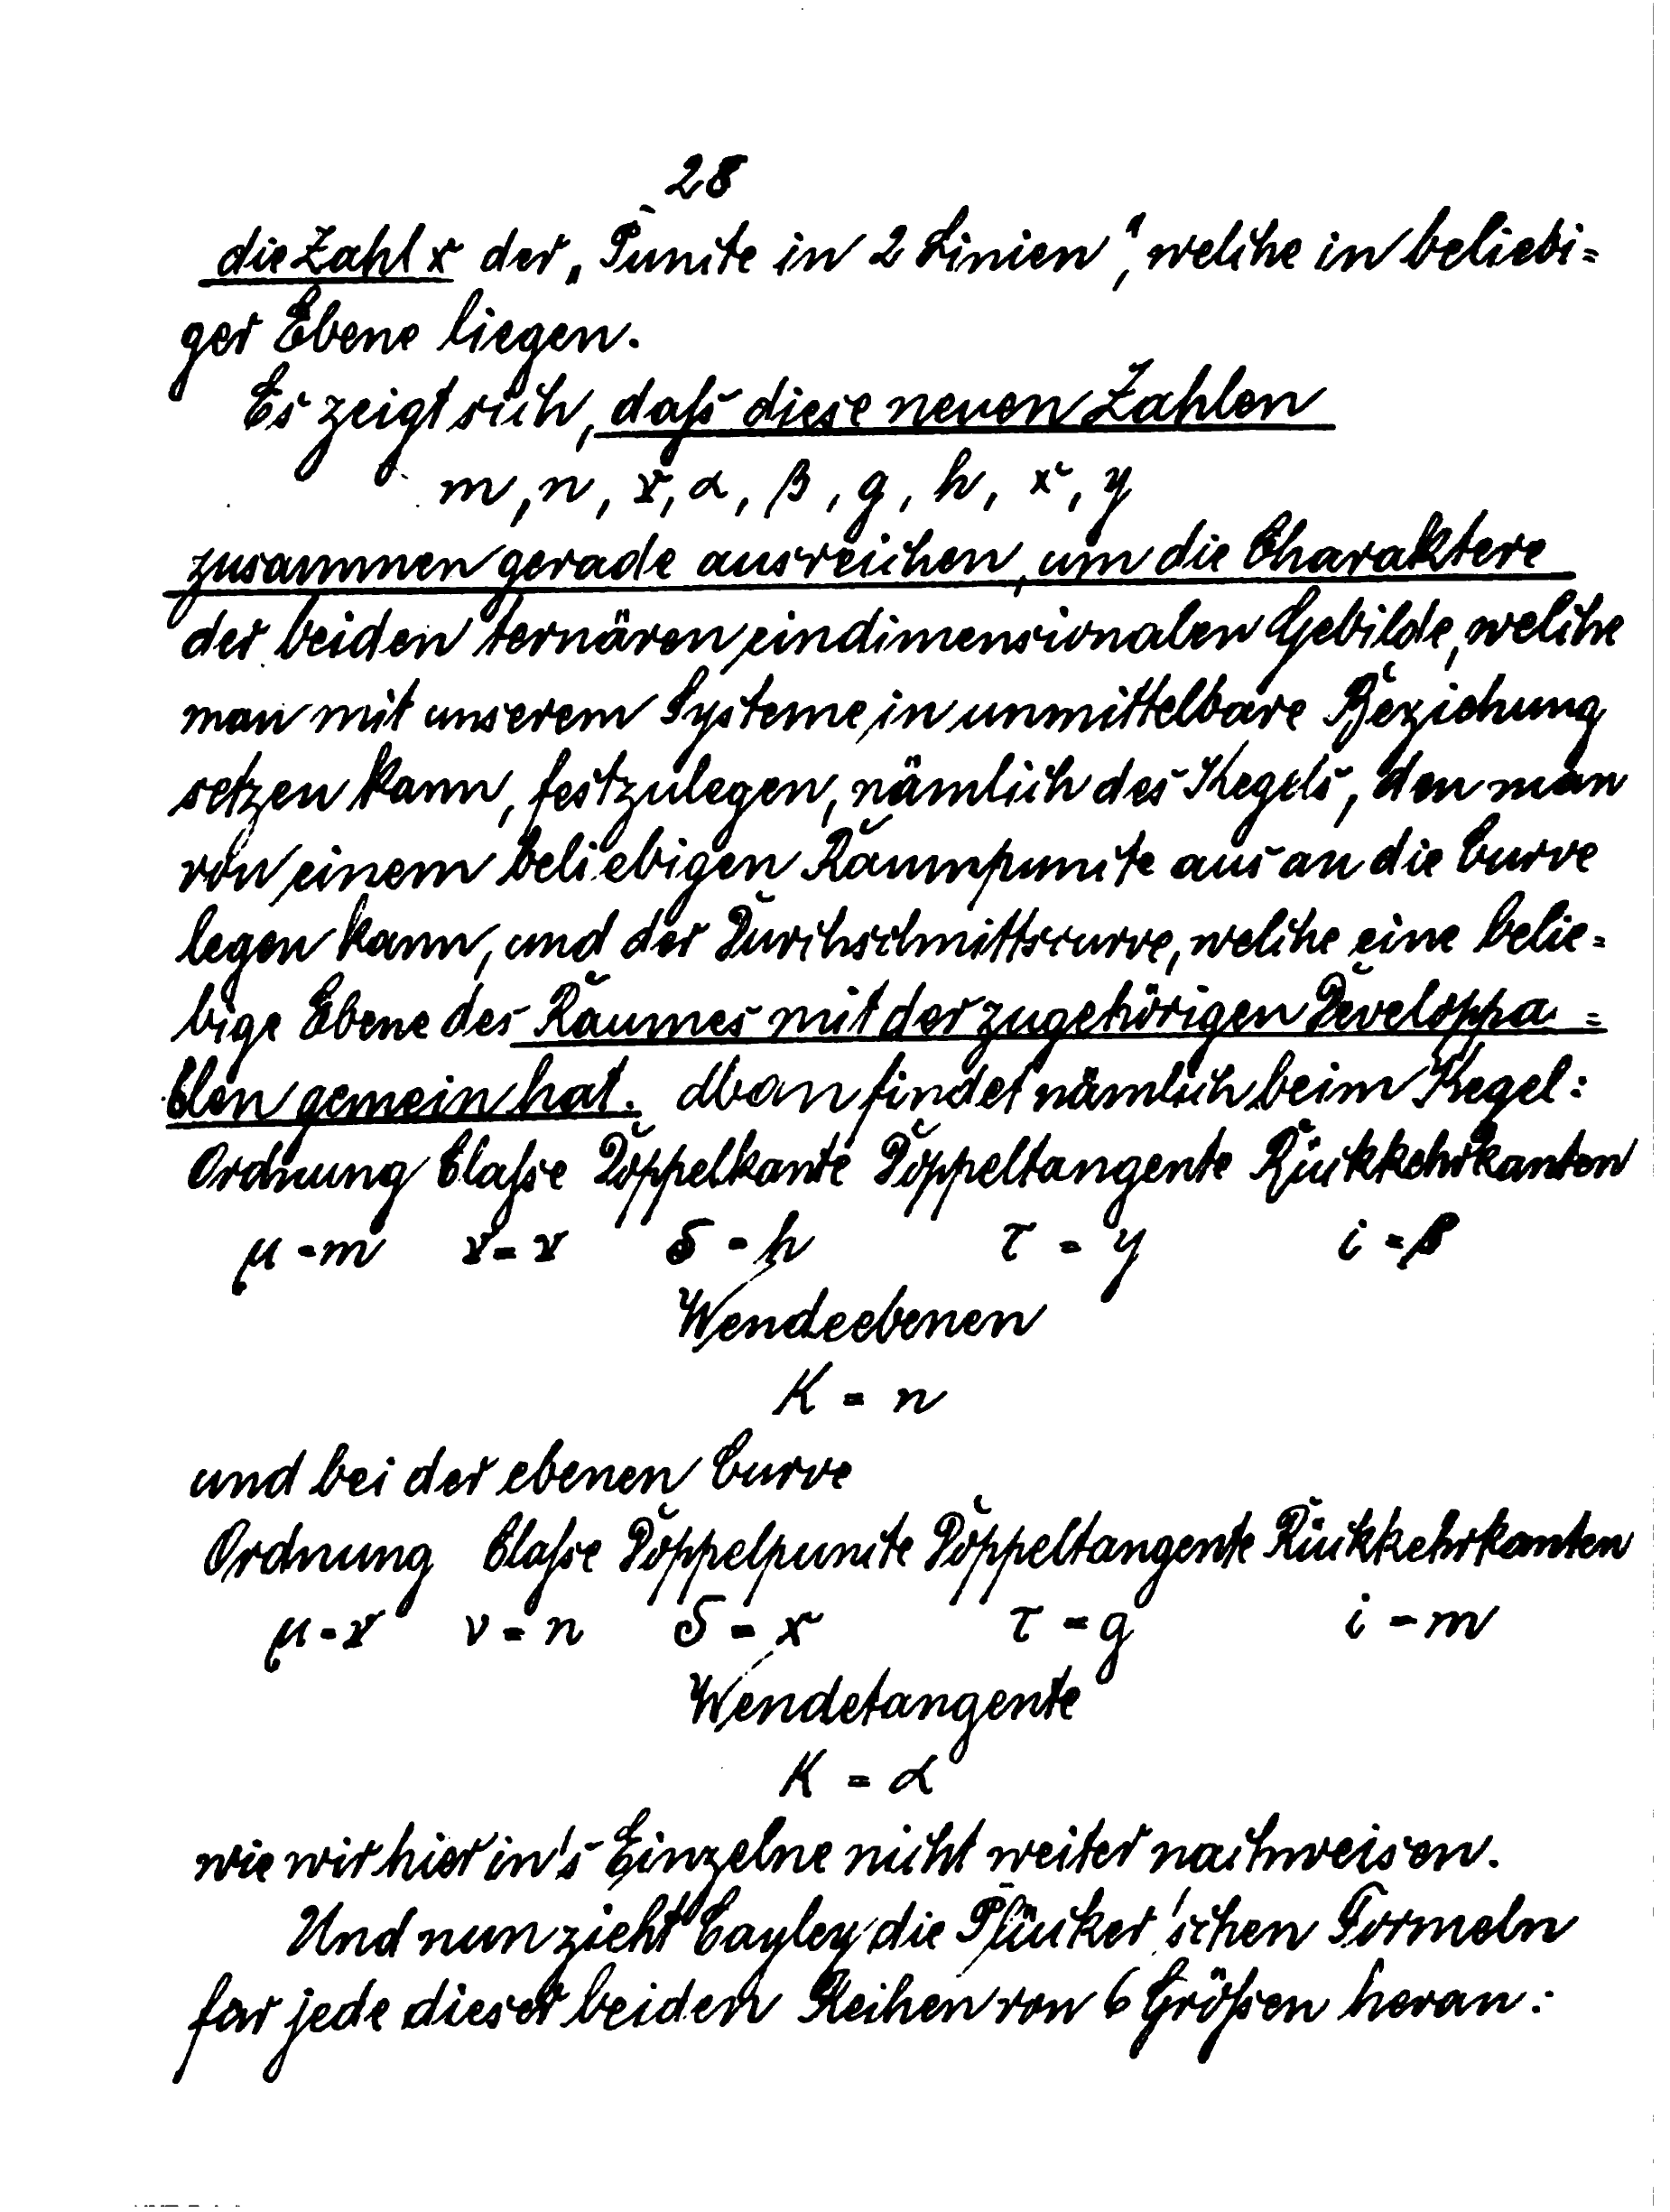 28
die Zahl x der „Puncte in 2 Linien“, welche in beliebi=
ger Ebene liegen.
Es zeigt sich, daß diese neuen Zahlen
m, n, r, α, β, g, h, x, y
zusammen gerade ausreichen, um die Charaktere
der beiden ternären eindimensionalen Gebilde, welche
man mit unserem Systeme in unmittelbare Beziehung
setzen kann, festzulegen, nämlich des Kegels, den man
von einem beliebigen Raumpuncte aus an die Curve
legen kann, und der Durchschnittscurve, welche eine belie=
bige Ebene des Raumes mit der zugehörigen Developpa=
blen gemein hat. Man findet nämlich beim Kegel:
Ordnung Claße Doppelkante Doppeltangente Rückkehrkanten
μ = m r = r δ = h τ = y i = β
Wendeebenen
K = n
und bei der ebenen Curve
Ordnung Claße Doppelpuncte Doppeltangente Rückkehrkanten
μ = r ν = n δ = x τ = g i = m
Wendetangente
K = α
wie wir hier in's Einzelne nicht weiter nachweisen.
Und nun zieht Cayley die Plücker'schen Formeln
für jede dieser beiden Reihen von 6 Größen heran: